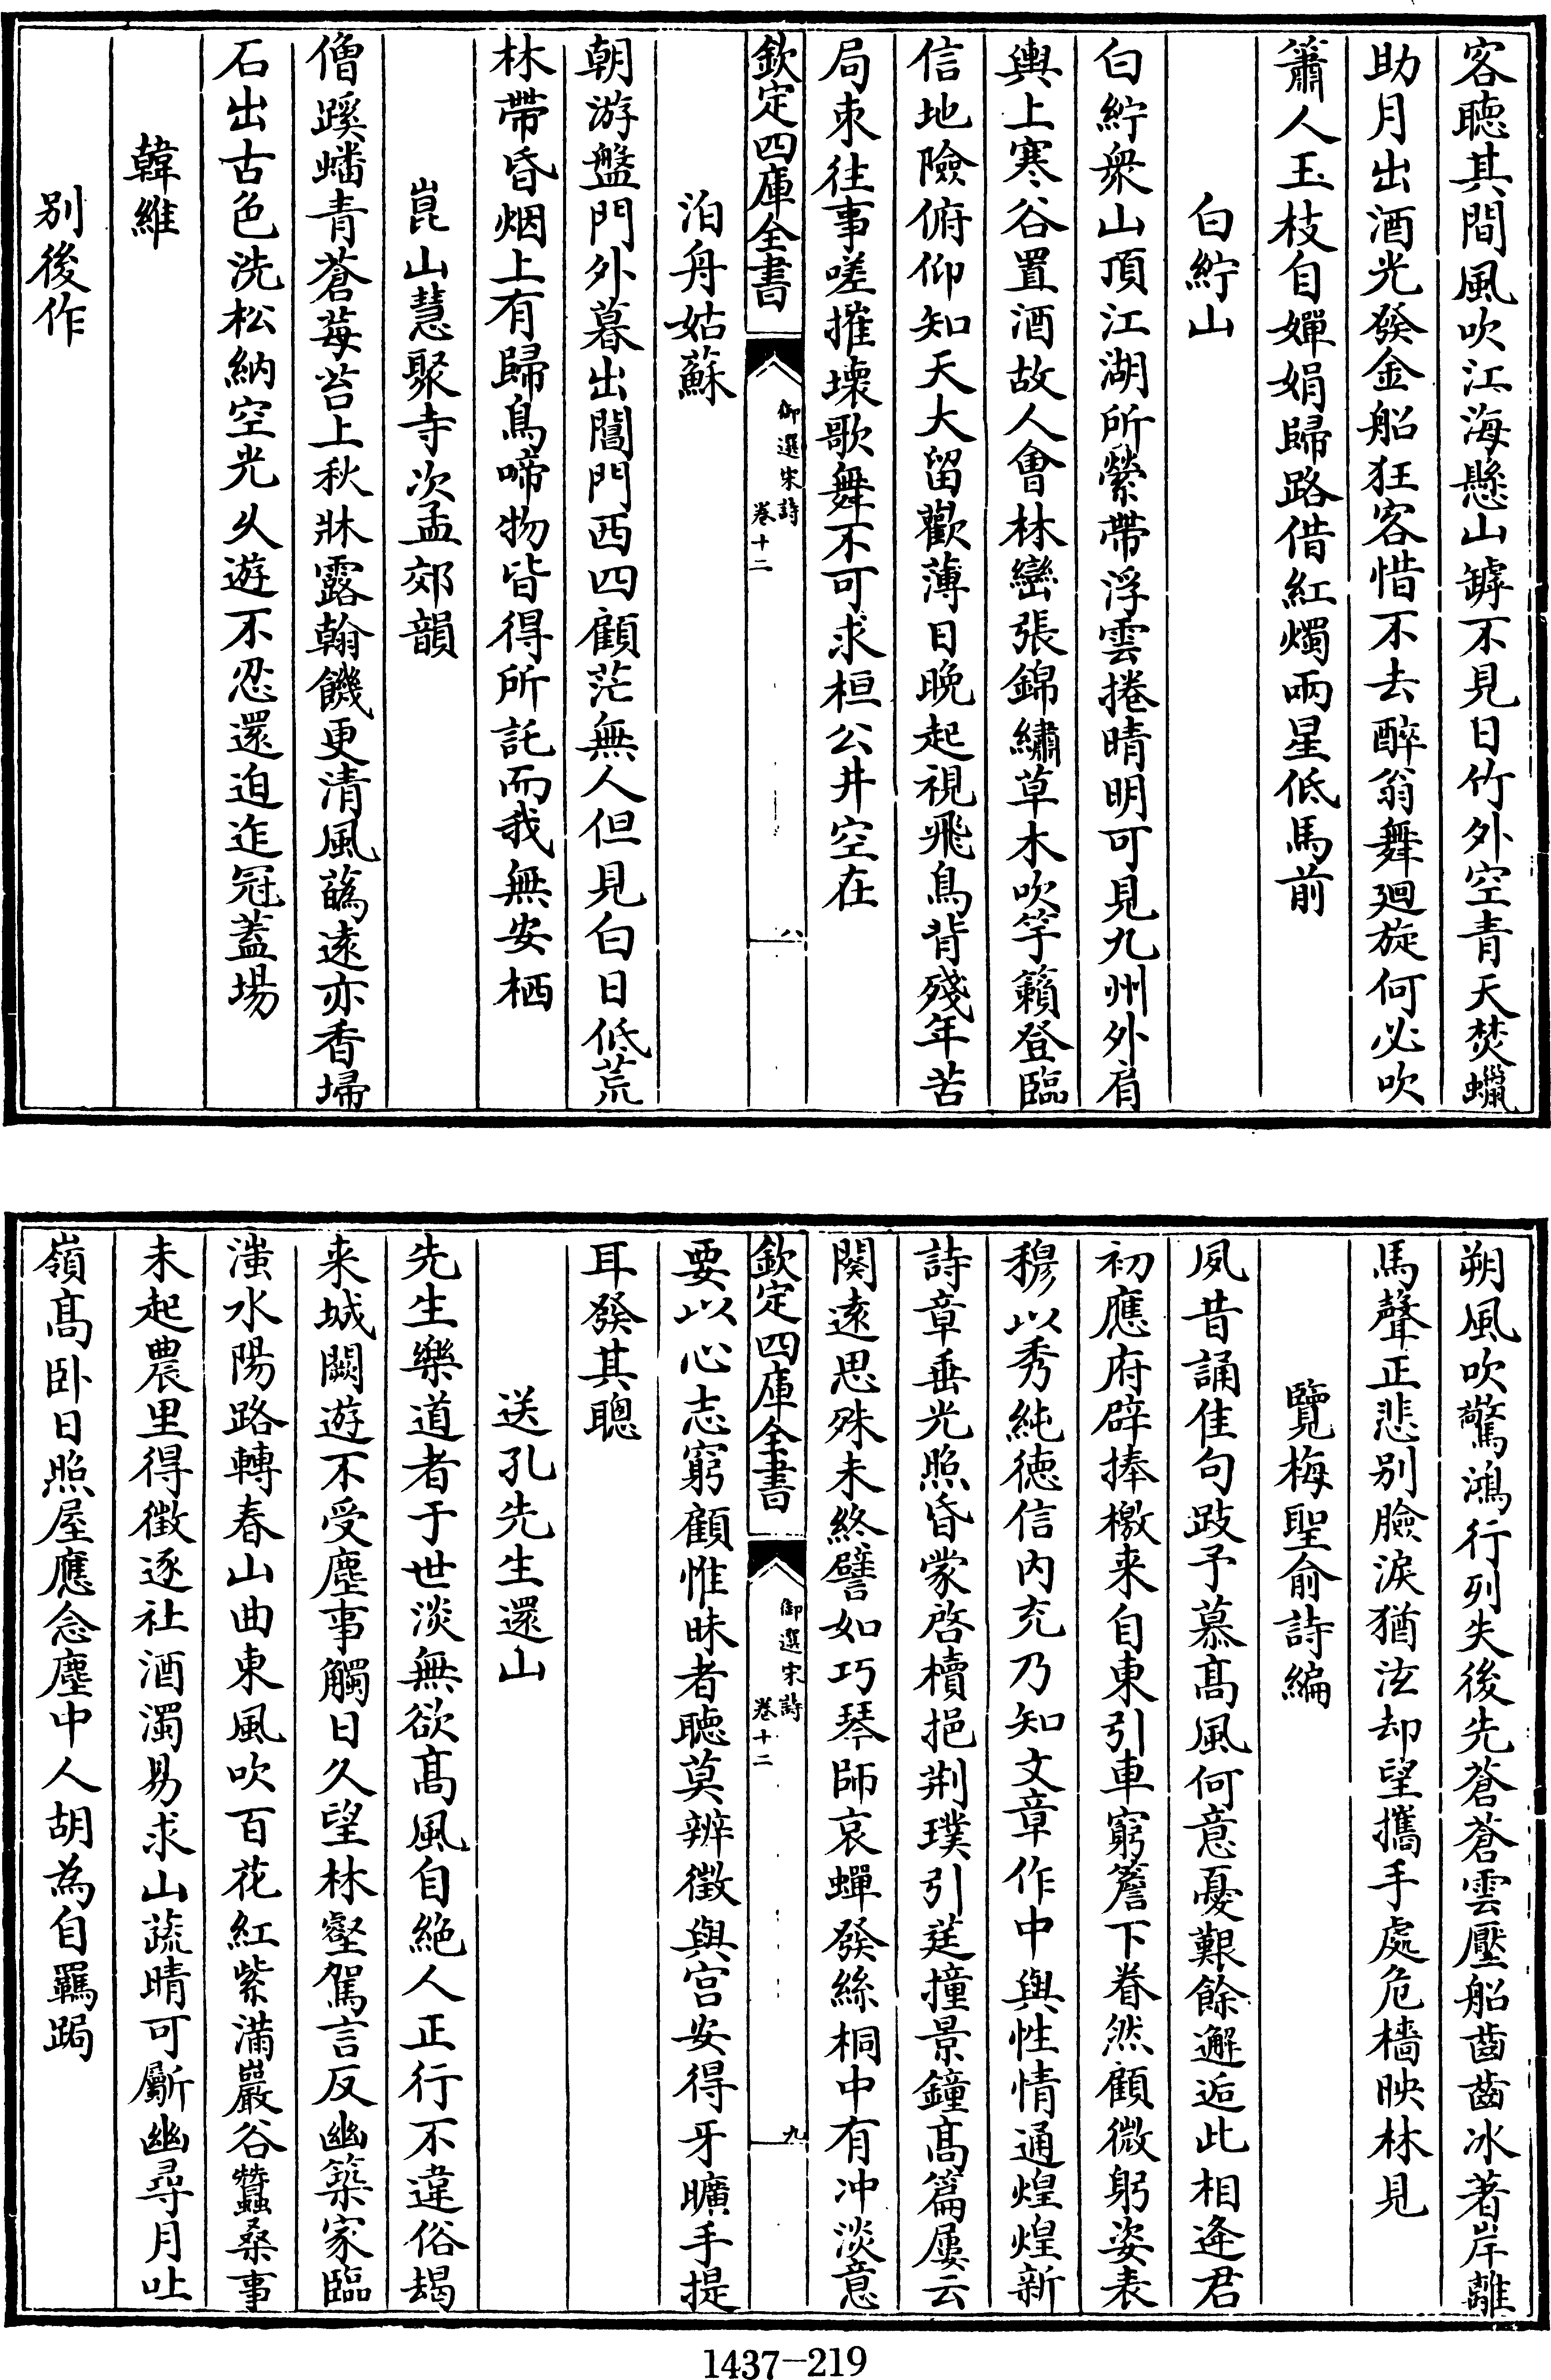 客聴其間風吹江海懸山罅不見日竹外空青天焚蠟
助月出酒光發金船狂客惜不去醉翁舞廻旋何必吹
簫人玉枝自嬋娟歸路借紅燭兩星低馬前
白紵山
白紵衆山頂江湖所縈帶浮雲捲晴明可見九州外肩
輿上寒谷置酒故人會林巒張錦繡草木吹竽籟登臨
信地險俯仰知天大留歡薄日晚起視飛鳥背殘年苦
局束往事嗟摧壊歌舞不可求桓公井空在
欽定四庫全書
御選宋詩
卷十二
八
泊舟姑蘇
朝游盤門外暮出閶門西四顧茫無人但見白日低荒
林帶昏烟上有歸鳥啼物皆得所託而我無安栖
崑山慧聚寺次孟郊韻
僧蹊蟠青蒼莓苔上秋牀露翰饑更清風蘤逺亦香埽
石出古色洗松納空光乆遊不忍還迫迮冠蓋場
韓維
别後作
朔風吹驚鴻行列失後先蒼蒼雲壓船齒齒冰著岸離
馬聲正悲别臉淚猶泫却望攜手處危檣映林見
覽梅聖俞詩編
夙昔誦佳句跂予慕髙風何意憂艱餘邂逅此相逄君
初應府辟捧檄来自東引車窮簷下眷然顧微躬姿表
穆以秀純徳信内充乃知文章作中與性情通煌煌新
詩章垂光照昏蒙啓櫝挹荆璞引莛撞景鐘髙篇屢云
闋逺思殊未終譬如巧琴師哀蟬發絲桐中有冲淡意
欽定四庫全書
御選宋詩
卷十二
九
要以心志窮顧惟昧者聴莫辨徵與宫安得牙曠手提
耳發其聰
送孔先生還山
先生樂道者于世淡無欲髙風自絶人正行不違俗朅
来城闕遊不受塵事觸日久望林壑駕言反幽築家臨
滍水陽路轉春山曲東風吹百花紅紫滿巖谷蠶桑事
未起農里得徵逐社酒濁易求山蔬晴可斸幽尋月吐
嶺髙卧日照屋應念塵中人胡為自羈跼
1437—219